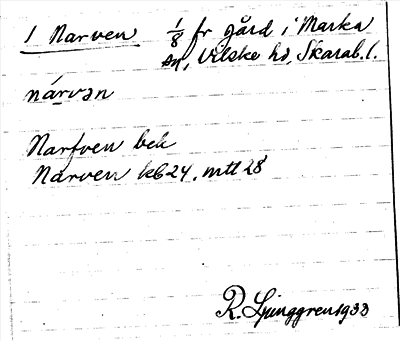 1 Narven 1/8 fr gård i Marka
sn, Vilske hd, Skarab. l.
nárvən
Narfven bek
Narven kb 24, mtl 28
R. Ljunggren 1933